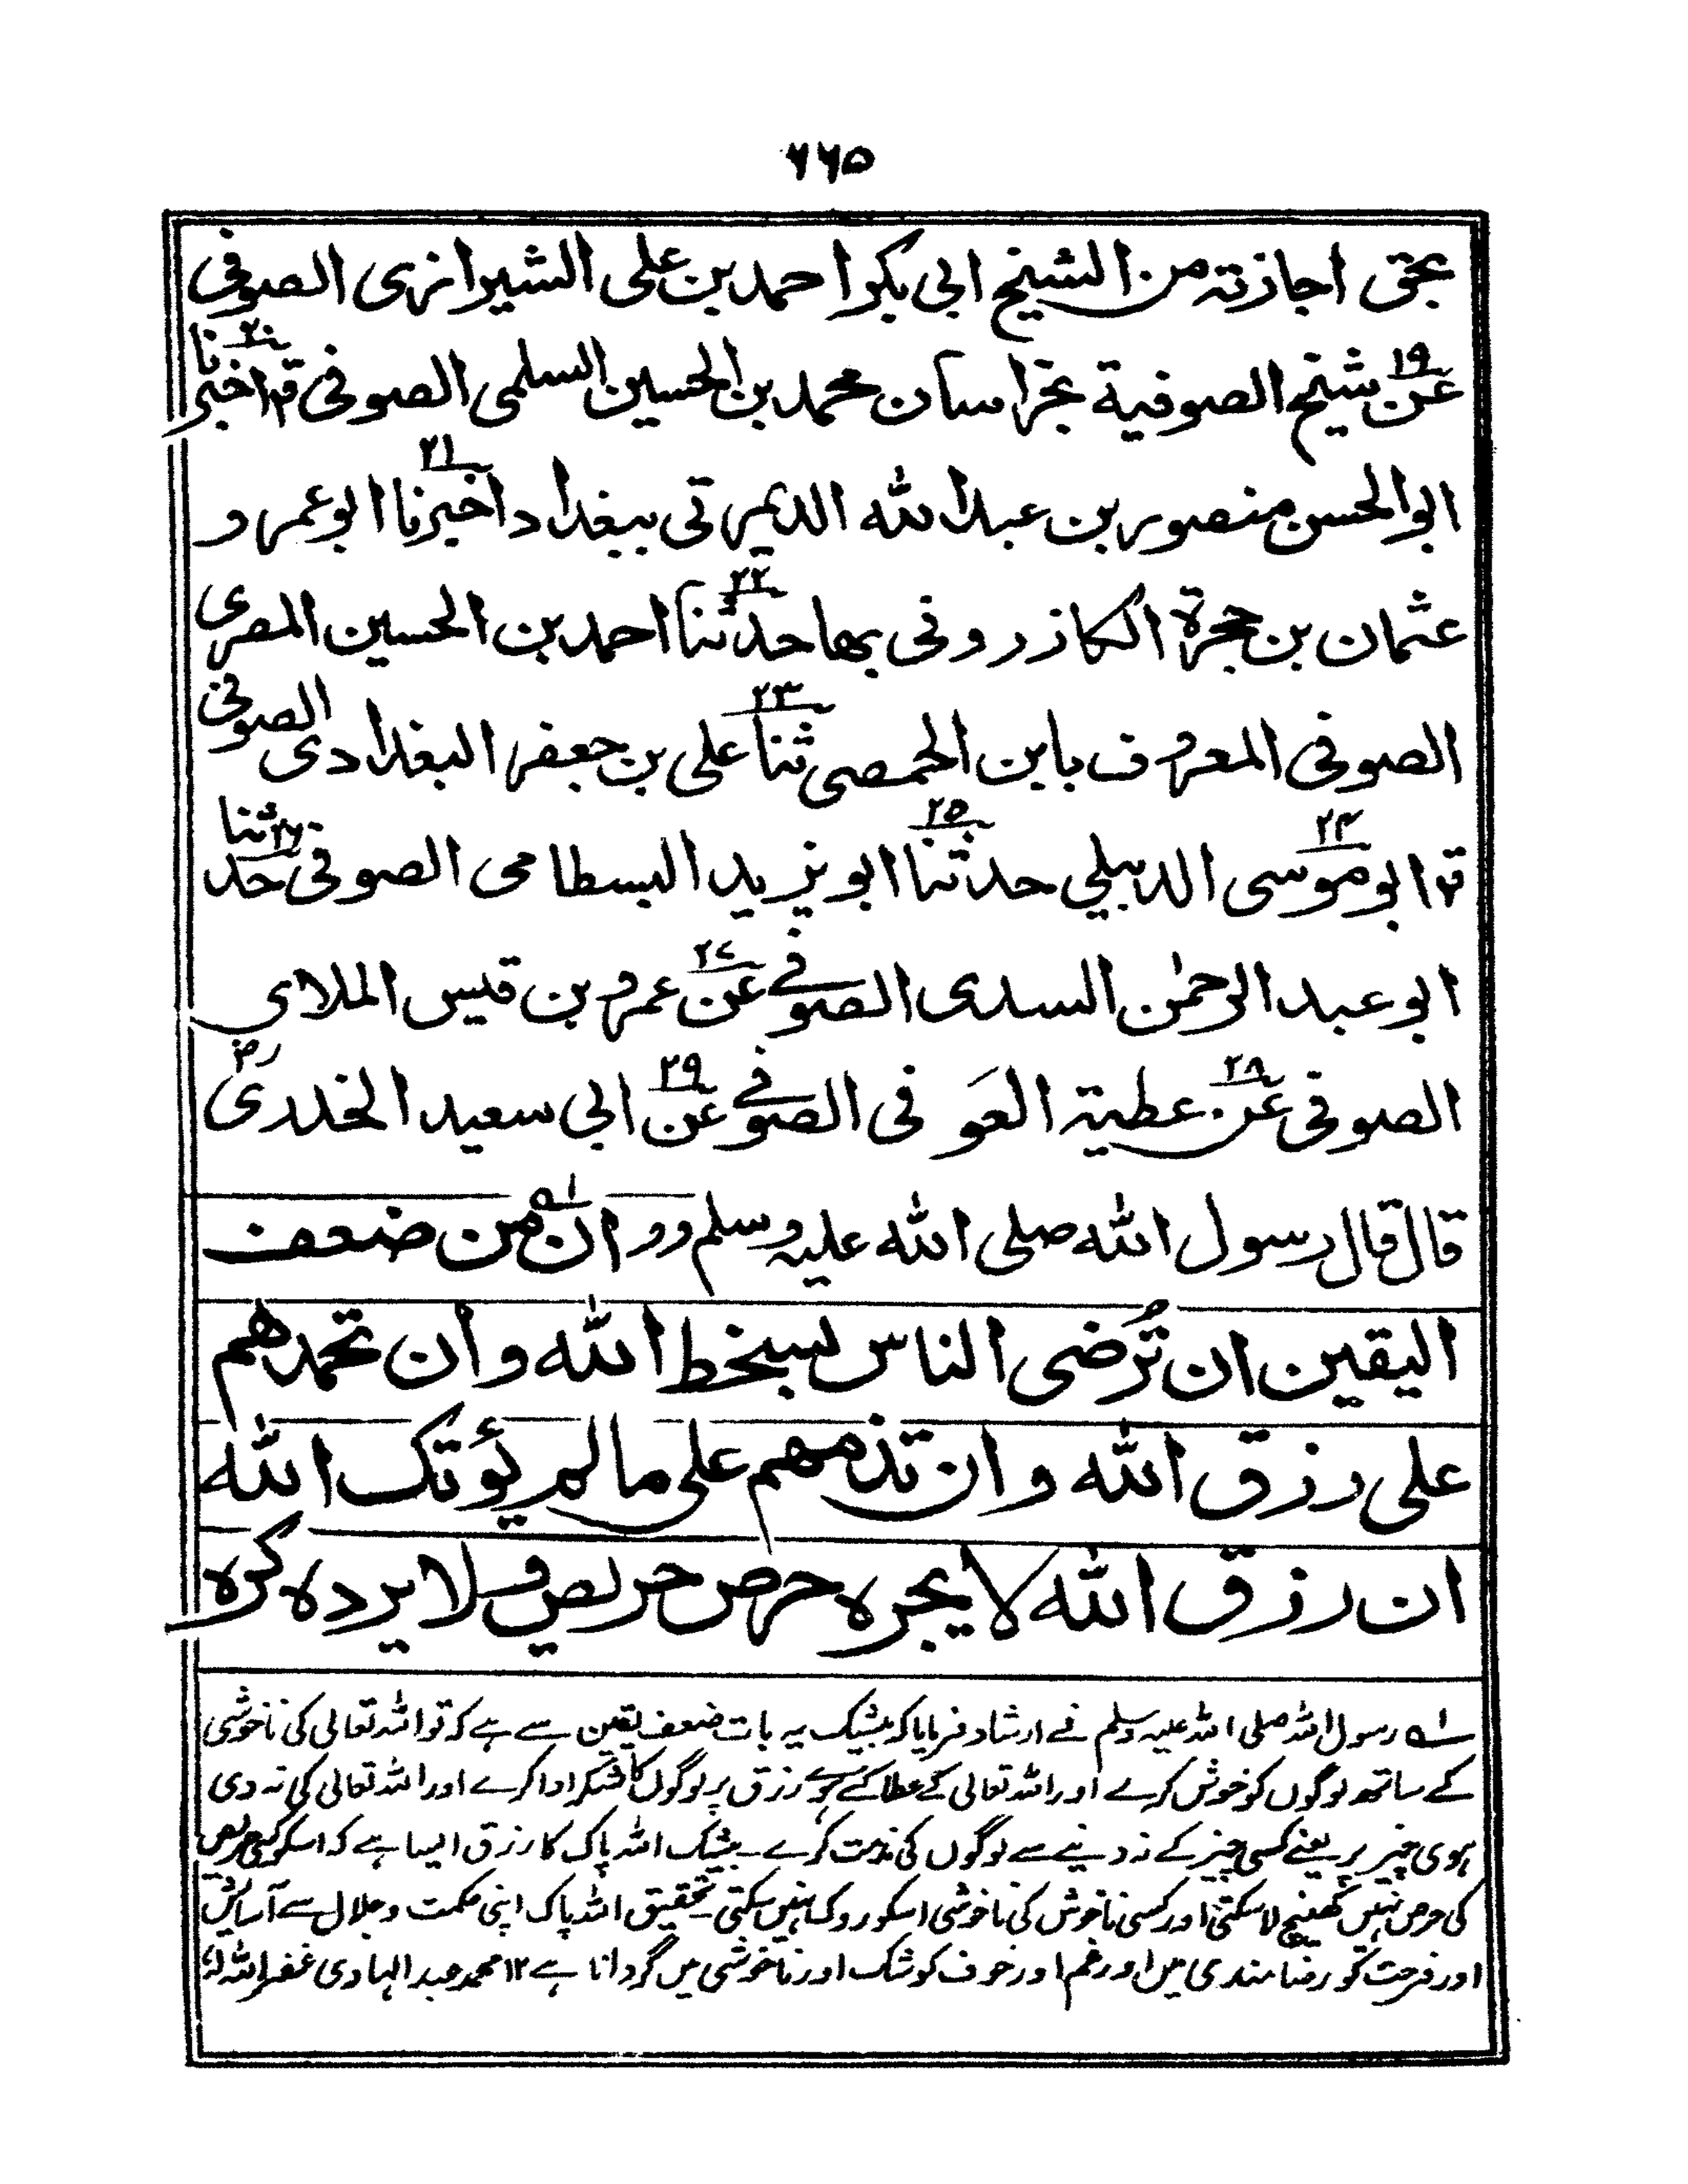 ٦٦٥
بحق اجازته من الشيخ ابى بكر احمد بن على الشيرازى الصوفى
١٩ عن شيخ الصوفية بخراسان محمد بن الحسين السلمى الصوفى قم ٢٠ اخبرنا
ابو الحسن منصور بن عبد الله الديمرتى ببغداد ٢١ اخبرنا ابو عمرو
عثمان بن حجرة الكازرونى بها ٢٢ حدثنا احمد بن الحسين المصرى
الصوفى المعروف بابن الحمصى ٢٣ ثنا على بن جعفر البغدادى الصوفى
قم ٢٤ ابو موسى الدبيلي ٢٥ حدثنا ابو يزيد البسطامى الصوفى ٢٦ حدثنا
ابو عبد الرحمٰن السدى الصوفے ٢٧ عن عمرو بن قيس الملاى
الصوفى ٢٨ عن عطية العَوفى الصوفے ٢٩ عن ابى سعيد الخدرى رض
قال قال رسول الله صلى الله عليه وسلم وو ان ؁۱ من ضعف
اليقين ان تُرضى الناس بسخط الله وأن تحمدهم
على رزق الله وان تذمهم على ما لم يؤتك الله
ان رزق الله لا يجره حرص حريص ولا يرده كره
؁۱ رسول اللہ صلی اللہ علیہ وسلم نے ارشاد فرمایا کہ بیشک یہ بات ضعف یقین سے ہے کہ تو اللہ تعالی کی ناخوشی
کے ساتھ لوگوں کو خوش کرے اور اللہ تعالی کے عطا کئے ہوے رزق پر لوگوں کا شکر ادا کرے اور اللہ تعالی کی نہ دی
ہوی چیز پر یعنے کسی چیز کے نہ دینے سے لوگوں کی مذمت کرے ـ بیشک اللہ پاک کا رزق ایسا ہے کہ اسکو کسی حریص
کی حرص نہیں کھینچ لاسکتی اور کسی ناخوش کی ناخوشی اسکو روک نہیں سکتی ـ تحقیق اللہ پاک اپنی حکمت و جلال سے آسائش
اور فرحت کو رضا مندی میں اور غم اور خوف کو شک اور ناخوشی میں گردانا ہے ۱۲ محمد عبد الہادی غفر اللہ لہ